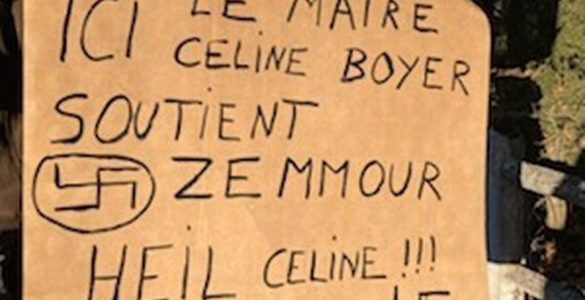 ICI LE MAIRE
CELINE BOYER
SOUTIENT
ZEMMOUR
HEIL CELINE !!!